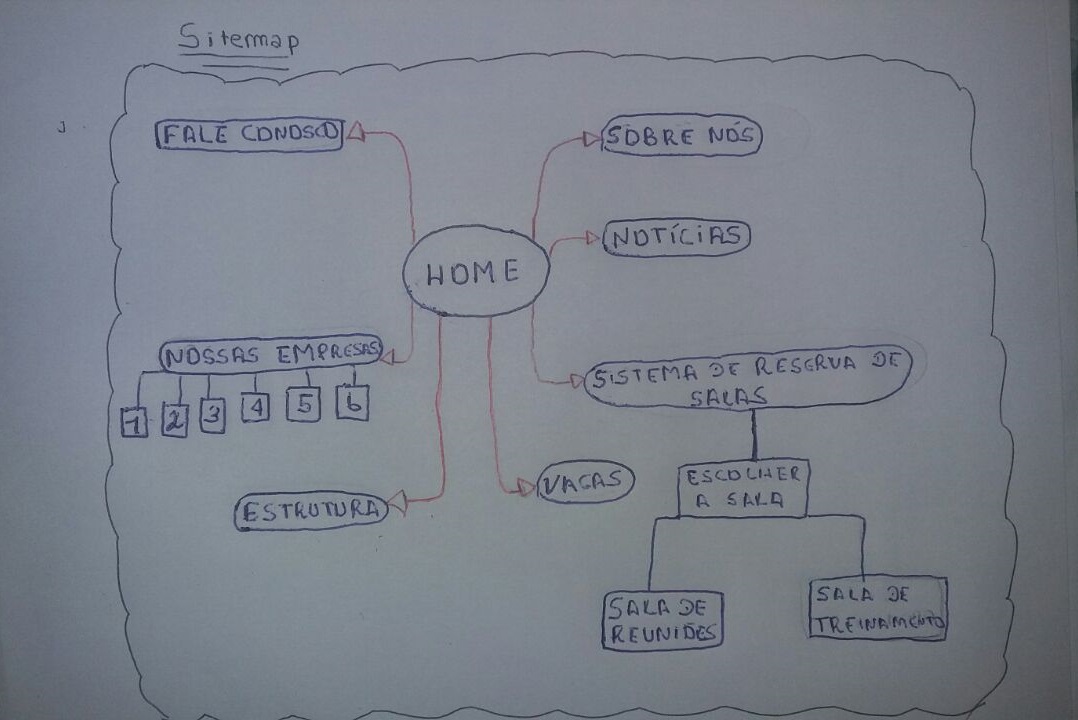 Sitemap
FALE CONOSCO
SOBRE NÓS
NOTÍCIAS
HOME
NOSSAS EMPRESAS
1 2 3 4 5 6
SISTEMA DE RESERVA DE
SALAS
ESTRUTURA
VAGAS
ESCOLHER
A SALA
SALA DE
REUNIÕES
SALA DE
TREINAMENTO